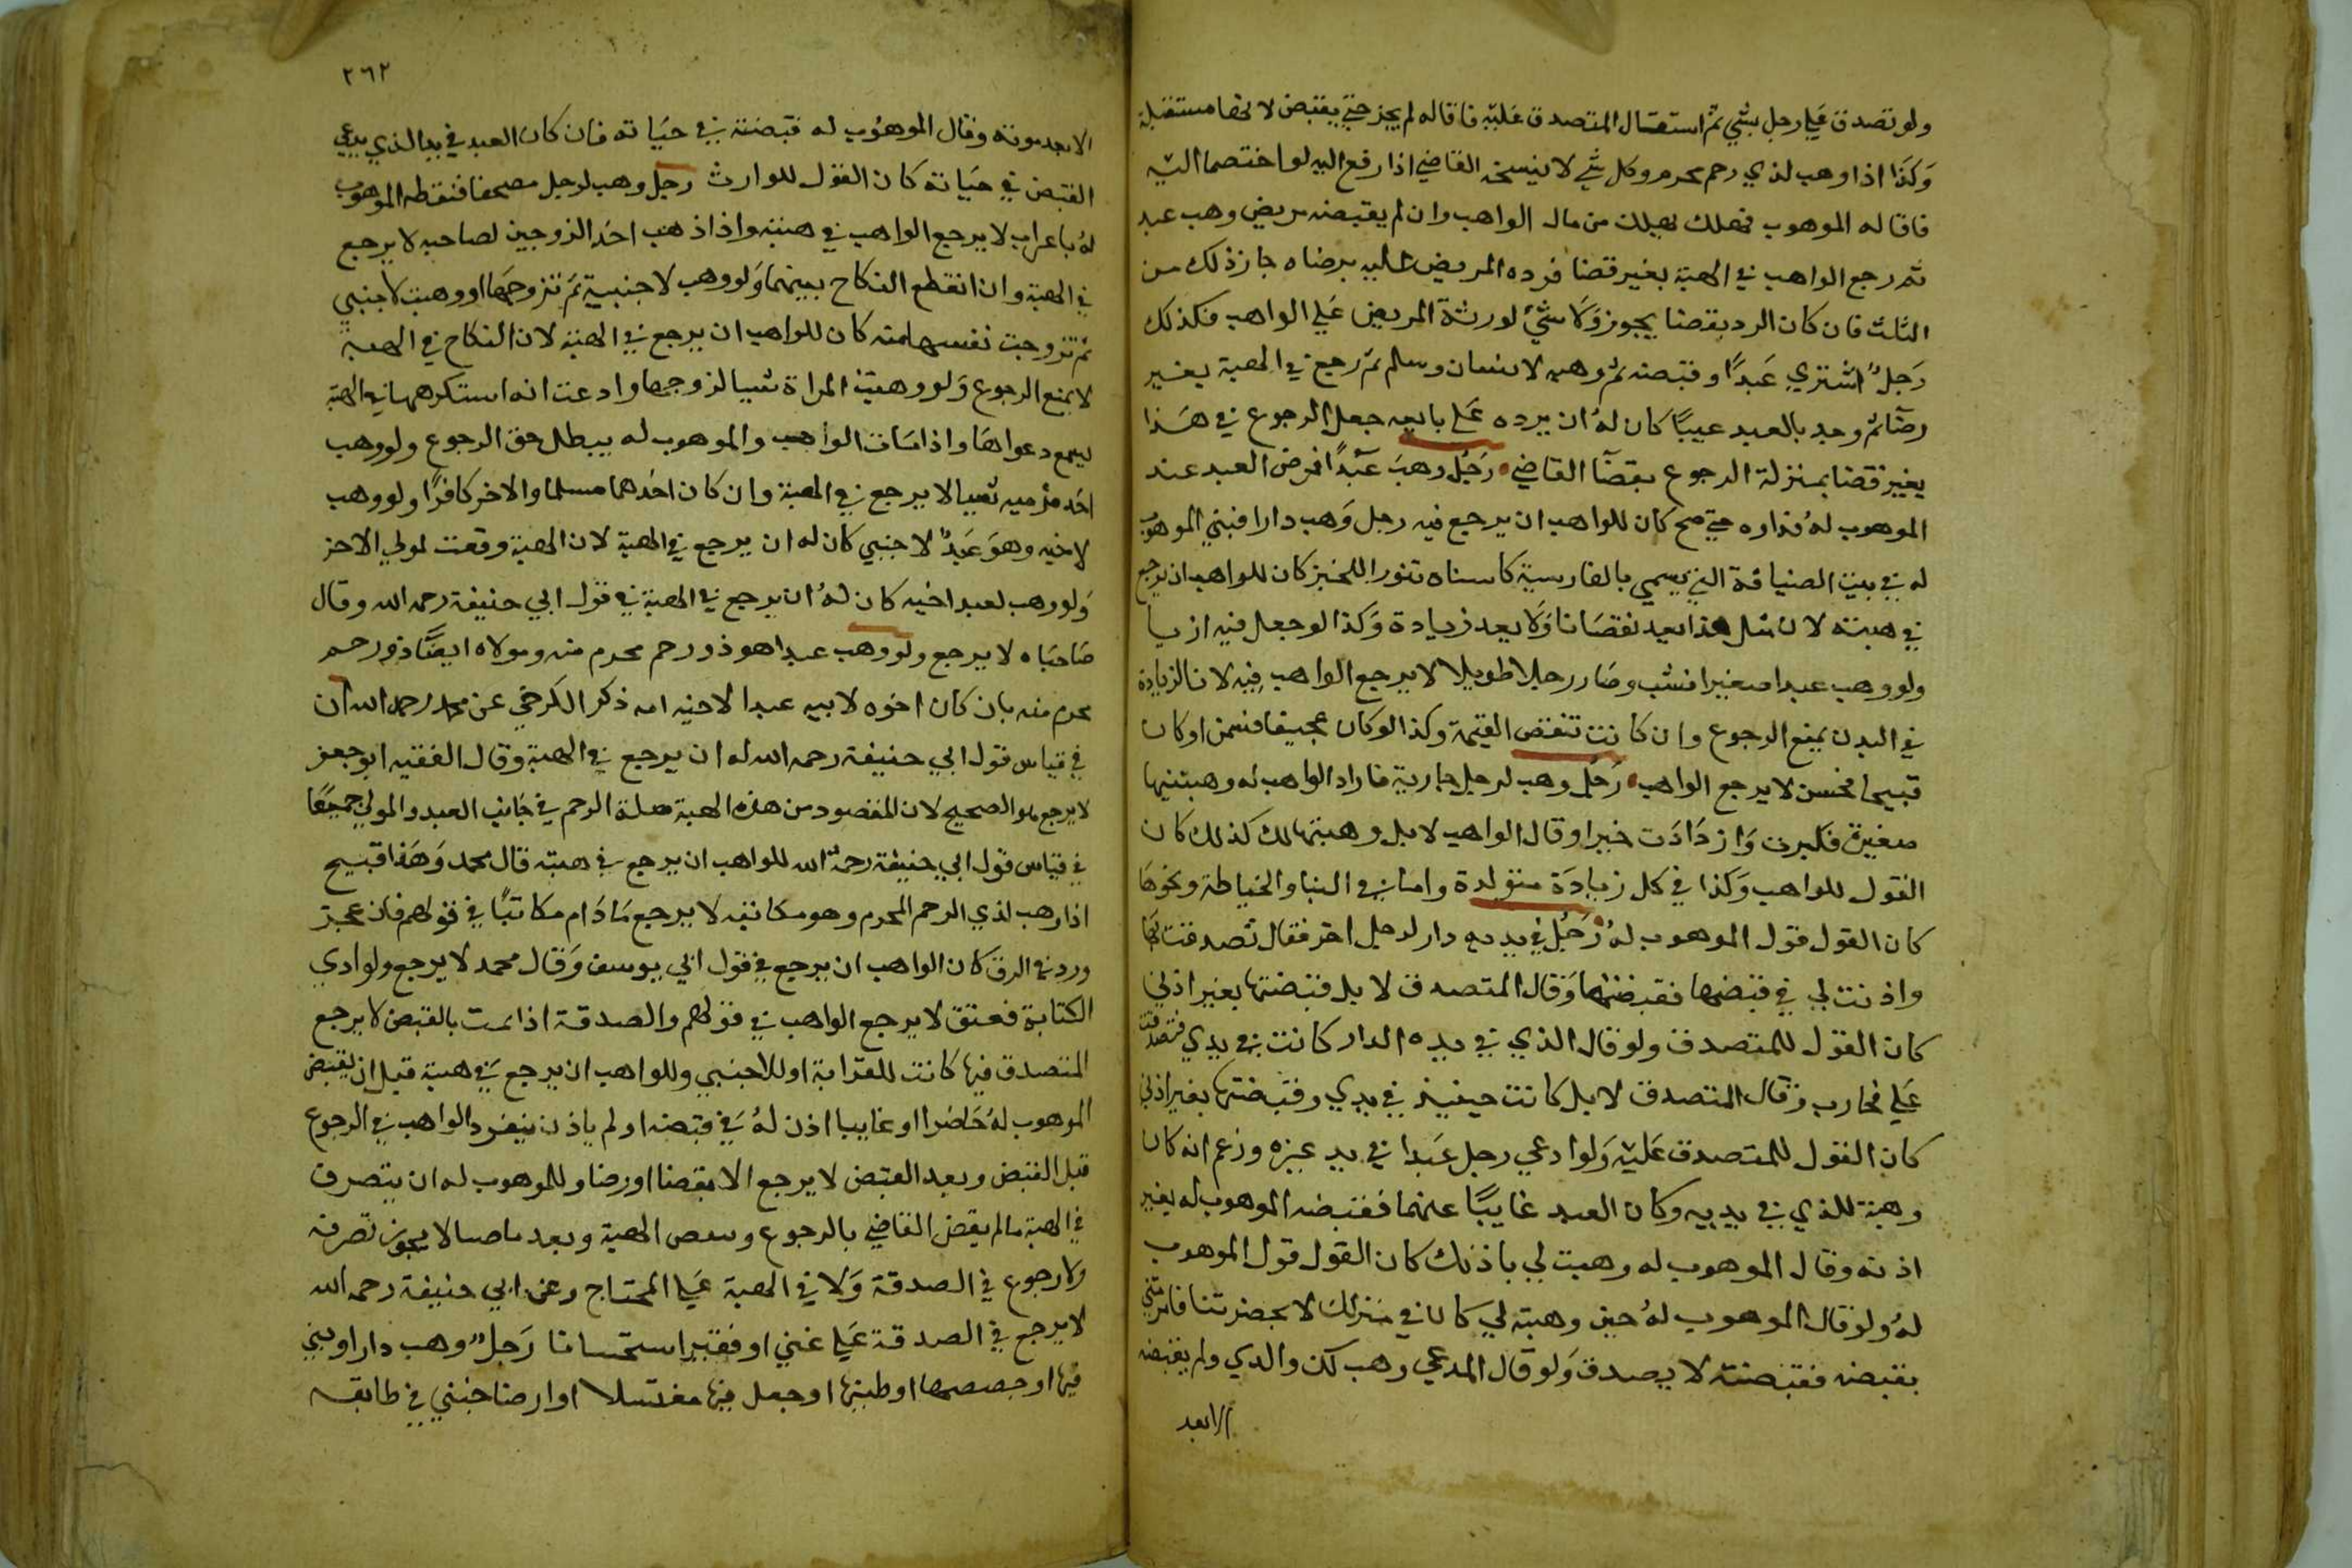 ولو تصدق علي رجل بشي ثم استقال المتصدق عليه فاقاله لم يجز حتي يقبض لانها مستقبلة
وكذا اذا وهب لذي رحم محرم وكل شي لا يفسخه القاضي اذا رفع اليه لو اختصما اليه
فاقاله الموهوب فهلك يهلك من مال الواهب وان لم يقبضه مريض وهب عبد
ثم رجع الواهب في الهبة بغير قضا فرده المريض اليه برضاه جاز ذلك من
الثلث فان كان الرد بقضا يجوز ولا شي لورثة المريض علي الواهب فكذلك
رجل اشتري عبدا وقبضه ثم وهبه لانسان وسلم ثم رجع في الهبة بغير
رضا ثم وجد بالعبد عيبا كان له ان يرده علي بايعه جعل الرجوع في هذا
بغير قضا بمنزلة الرجوع بقضا القاضي رجل وهب عبدا فمرض العبد عند
الموهوب له فداواه حتي صح كان للواهب ان يرجع فيه رجل وهب دارا فبني الموهوب
له في بيت الضيافة التي يسمي بالفارسية كاسناه تنورا للخبز كان للواهب ان يرجع
في هبته لان مثل هذا يعد نقصانا ولا يعد زيادة وكذا لو جعل فيه اريا
ولو وهب عبدا صغيرا فشب وصار رجلا طويلا لا يرجع الواهب فيه لان الزيادة
في البدن يمنع الرجوع وان كانت تنقض القيمة وكذا لو كان عجيفا فسمن او كان
قبيحا فحسن لا يرجع الواهب رجل وهب لرجل جارية فاراد الواهب له وهبتنيها
صغيرة فكبرت وازدادت خيرا وقال الواهب لا بل وهبتها لك كذلك كان
القول للواهب وكذا في كل زيادة متولدة واما في البنا والخياطة ونحوها
كان القول قول الموهوب له رجل في يديه دار لرجل اخر فقال تصدقت بها
واذنت لي في قبضها فقبضتها وقال المتصدق لا بل قبضتها بغير اذني
كان القول للمتصدق ولو قال الذي في يده الدار كانت في يدي فتصدقت
علي فجازت وقال المتصدق لا بل كانت حينيذ في يدي وقبضتها بغير اذني
كان القول للمتصدق عليه ولو ادعي رجل عبدا في يد غيره وزعم انه كان
وهبه للذي في يديه وكان العبد غايبا عنهما فقبضه الموهوب له بغير
اذنه وقال الموهوب له وهبت لي باذنك كان القول قول الموهوب
له ولو قال الموهوب له حين وهبته لي كان في منزلك لا بحضرتنا فامرتني
بقبضه فقبضته لا يصدق ولو قال المدعي وهب لك والدي ولم يقبضه
الا بعد
٢٦٢
الا بعد موته وقال الموهوب له قبضته في حياته فان كان العبد في يد الذي يدعي
القبض في حياته كان القول للوارث رجل وهب لرجل مصحفا فنقطه الموهوب
له باعراب لا يرجع الواهب في هبته واذا ذهب احد الزوجين لصاحبه لا يرجع
في الهبة وان انقطع النكاح بينهما ولو وهب لاجنبية ثم تزوجها او وهبت لاجنبي
ثم تزوجت نفسها منه كان للواهب ان يرجع في الهبة لان النكاح في الهبة
لا يمنع الرجوع ولو وهبت المراة شيا لزوجها وادعت انه استكرهها في الهبة
يسمع دعواها واذا مات الواهب والموهوب له يبطل حق الرجوع ولو وهب
احد شيا لا يرجع في الهبة وان كان احدهما مسلما والاخر كافرا ولو وهب
لاخيه وهو عبد لاجنبي كان له ان يرجع في الهبة لان الهبة وقعت لمولي الاخر
ولو وهب لعبد اخيه كان له ان يرجع في الهبة في قول ابي حنيفة رحمه الله وقال
صاحباه لا يرجع ولو وهب عبدا هو ذو رحم محرم منه ومولاه ايضا ذو رحم
محرم منه بان كان اخوه لابيه عبدا لاخيه امه ذكر الكرخي عن محمد رحمه الله ان
في قياس قول ابي حنيفة رحمه الله له ان يرجع في الهبة وقال الفقيه ابو جعفر
لا يرجع هو الصحيح لان المقصود من هذه الهبة صلة الرحم في جانب العبد والمولي جميعا
في قياس قول ابي حنيفة رحمة الله للواهب ان يرجع في هبته قال محمد وهذا قبيح
اذا وهب لذي الرحم المحرم وهو مكاتبه لا يرجع مادام مكاتبا في قولهم فان عجز
ورد في الرق كان الواهب ان يرجع في قول ابي يوسف وقال محمد لا يرجع ولو ادي
الكتابة فعتق لا يرجع الواهب في قولهم والصدقة اذا تمت بالقبض لا يرجع
المتصدق فيها كانت للقرابة او للاجنبي وللواهب ان يرجع في هبته قبل ان يقبض
الموهوب له حاضرا او غايبا اذن له في قبضه او لم ياذن ينفرد الواهب في الرجوع
قبل القبض وبعد القبض لا يرجع الا بقضا او رضا وللموهوب له ان يتصرف
في الهبة ما لم يقض القاضي بالرجوع وبعد لا يجوز تصرفه
ولا رجوع في الصدقة ولا في الهبة علي المحتاج وعن ابي حنيفة رحمه الله
لا يرجع في الصدقة علي غني او فقير استحسانا رجل وهب دارا وبني
فيها او جصصها او طينها او جعل فيها مغتسلا او ارضا فبني في طايفة